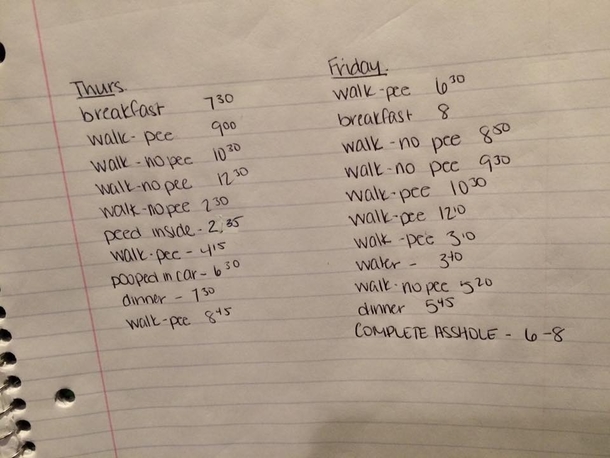 Thurs.
breakfast 7³⁰
walk-pee 9⁰⁰
walk-no pee 10³⁰
walk-no pee 12³⁰
walk-no pee 2³⁰
peed inside - 2:35
walk-pee - 4¹⁵
pooped in car - 6³⁰
dinner - 7³⁰
walk-pee 8⁴⁵
Friday.
walk-pee 6³⁰
breakfast 8
walk-no pee 8⁵⁰
walk-no pee 9³⁰
walk-pee 10³⁰
walk-pee 12¹⁰
walk-pee 3¹⁰
water - 3⁴⁰
walk-no pee 5²⁰
dinner 5⁴⁵
COMPLETE ASSHOLE - 6-8